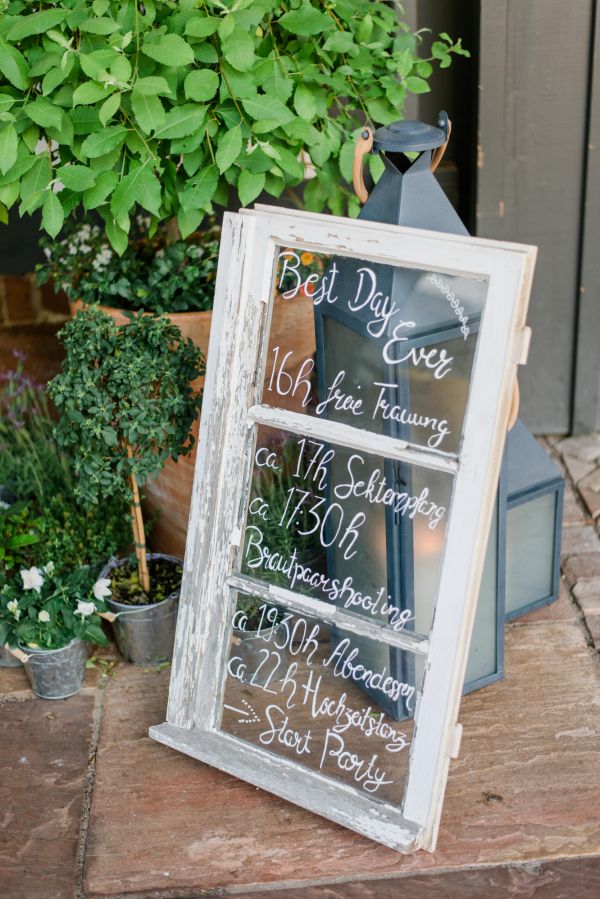 Best Day Ever
16h freie Trauung
ca. 17h Sektempfang
ca. 17:30h
Brautpaarshooting
ca 19:30h Abendessen
ca. 22h Hochzeitstanz
Start Party